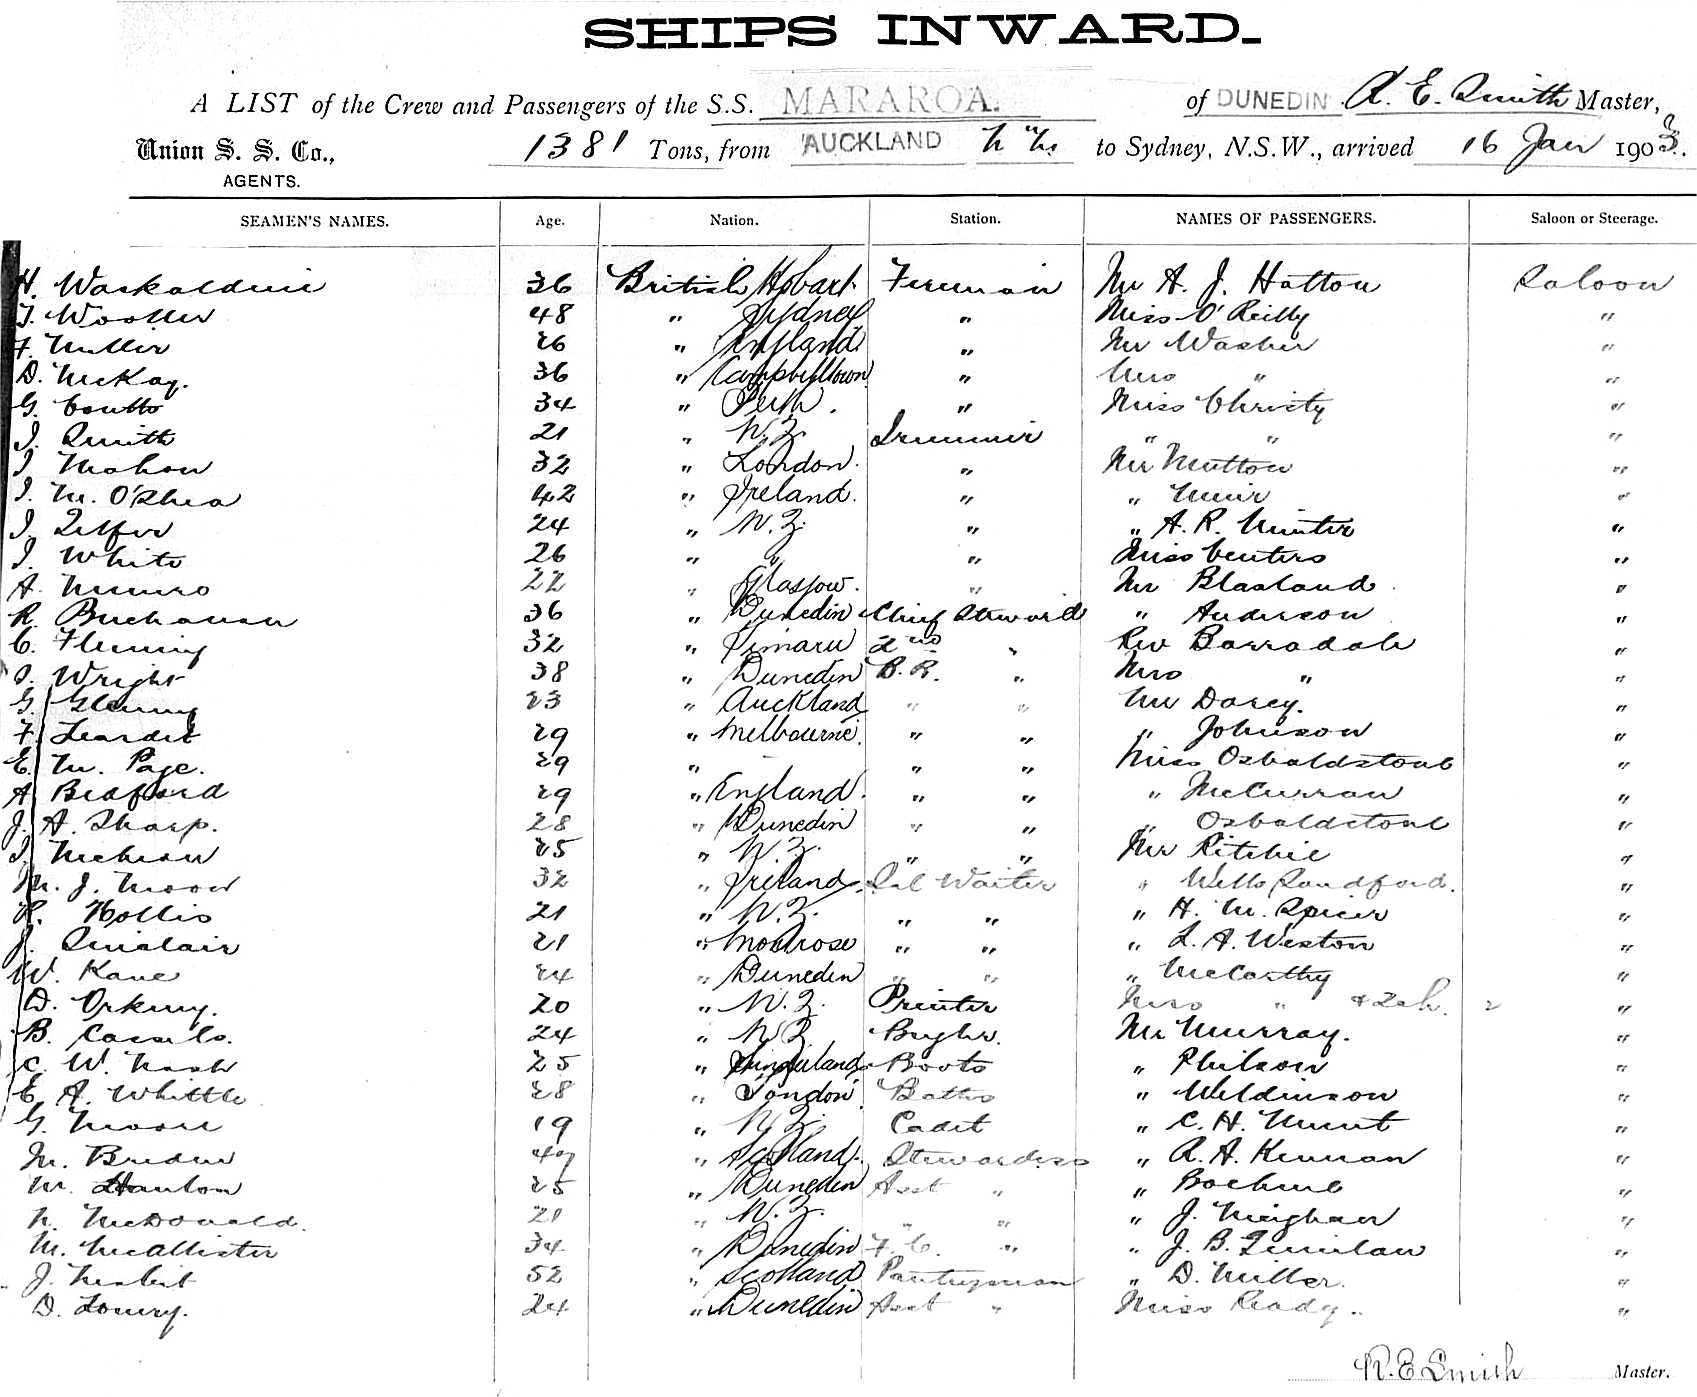 SHIPS INWARD.
A LIST of the Crew and Passengers of the S.S. MARAROA. of DUNEDIN. R. E. Smith Master,
Union S. S. Co., 1381 Tons, from AUCKLAND to Sydney, N.S.W., arrived 16 Jan 1903.
AGENTS.
SEAMEN'S NAMES. Age. Nation. Station. NAMES OF PASSENGERS. Saloon or Steerage.
H. 36 British Hobart Fireman Mr A. J. Hatton Saloon
T. 48 " Sydney " Miss O'Reilly "
F. Miller 26 " England " Mr Washer "
D. McKay. 36 " Campbelltown " Mrs " "
G. Coutts 34 " Perth. " Miss Christy "
J. Smith 21 " N.Z. Trimmer " " "
J. Mahon 32 " London. " Mr Mutton "
J. M. O'Shea 42 " Ireland. " " Muir "
J. Telfer 24 " N.Z. " " A. R. Minter "
J. White 26 " " " Miss Venters "
A. Munro 22 " Glasgow. " Mr Blasland "
R. Buchanan 36 " Dunedin Chief Steward " Anderson "
C. Fleming 32 " Timaru 2nd " Rev Barradale "
J. Wright 38 " Dunedin B. R. " Mrs " "
G. 23 " Auckland " " Mr Darcy. "
F. Leardet 29 " Melbourne " " " Johnson "
E. M. Page. 29 " " " Miss Osbaldstone "
A. Bradford 29 " England. " " " McCurran "
J. A. Sharp. 28 " Dunedin " " " Osbaldstone "
J. 25 " N.Z. " " Mr Ritchie "
M. J. Moore 32 " Ireland. Sal Waiter " Wells Sandford. "
R. Hollis 21 " N.Z. " " " H. M. Spicer "
J. Sinclair 21 " Montrose " " " L. A. Weston "
W. Kane 24 " Dunedin " " " McCarthy "
D. Orkney. 20 " N.Z. Printer Mrs " & 2 ch. 2 "
B. Cassels. 24 " N.Z. Mr Murray. "
C. W. Nash 25 " Sunderland Boots " Philson "
E. A. Whittle 28 " London Baths " "
G. Moore 19 " N.Z. Cadet " C. H. Munt "
M. 49 " Scotland. Stewardess " R. A. Kennan "
M. Hanlon 25 " Dunedin Asst " " Boehme "
N. McDonald. 21 " N.Z. " " " J. Meighan "
M. McAllister 34 " Dunedin F. C. " " J. B. "
J. Nesbit 52 " Scotland Pantryman " D. Miller. "
D. Lowry. 24 " Dunedin Asst " Miss Ready. "
R. E. Smith Master.